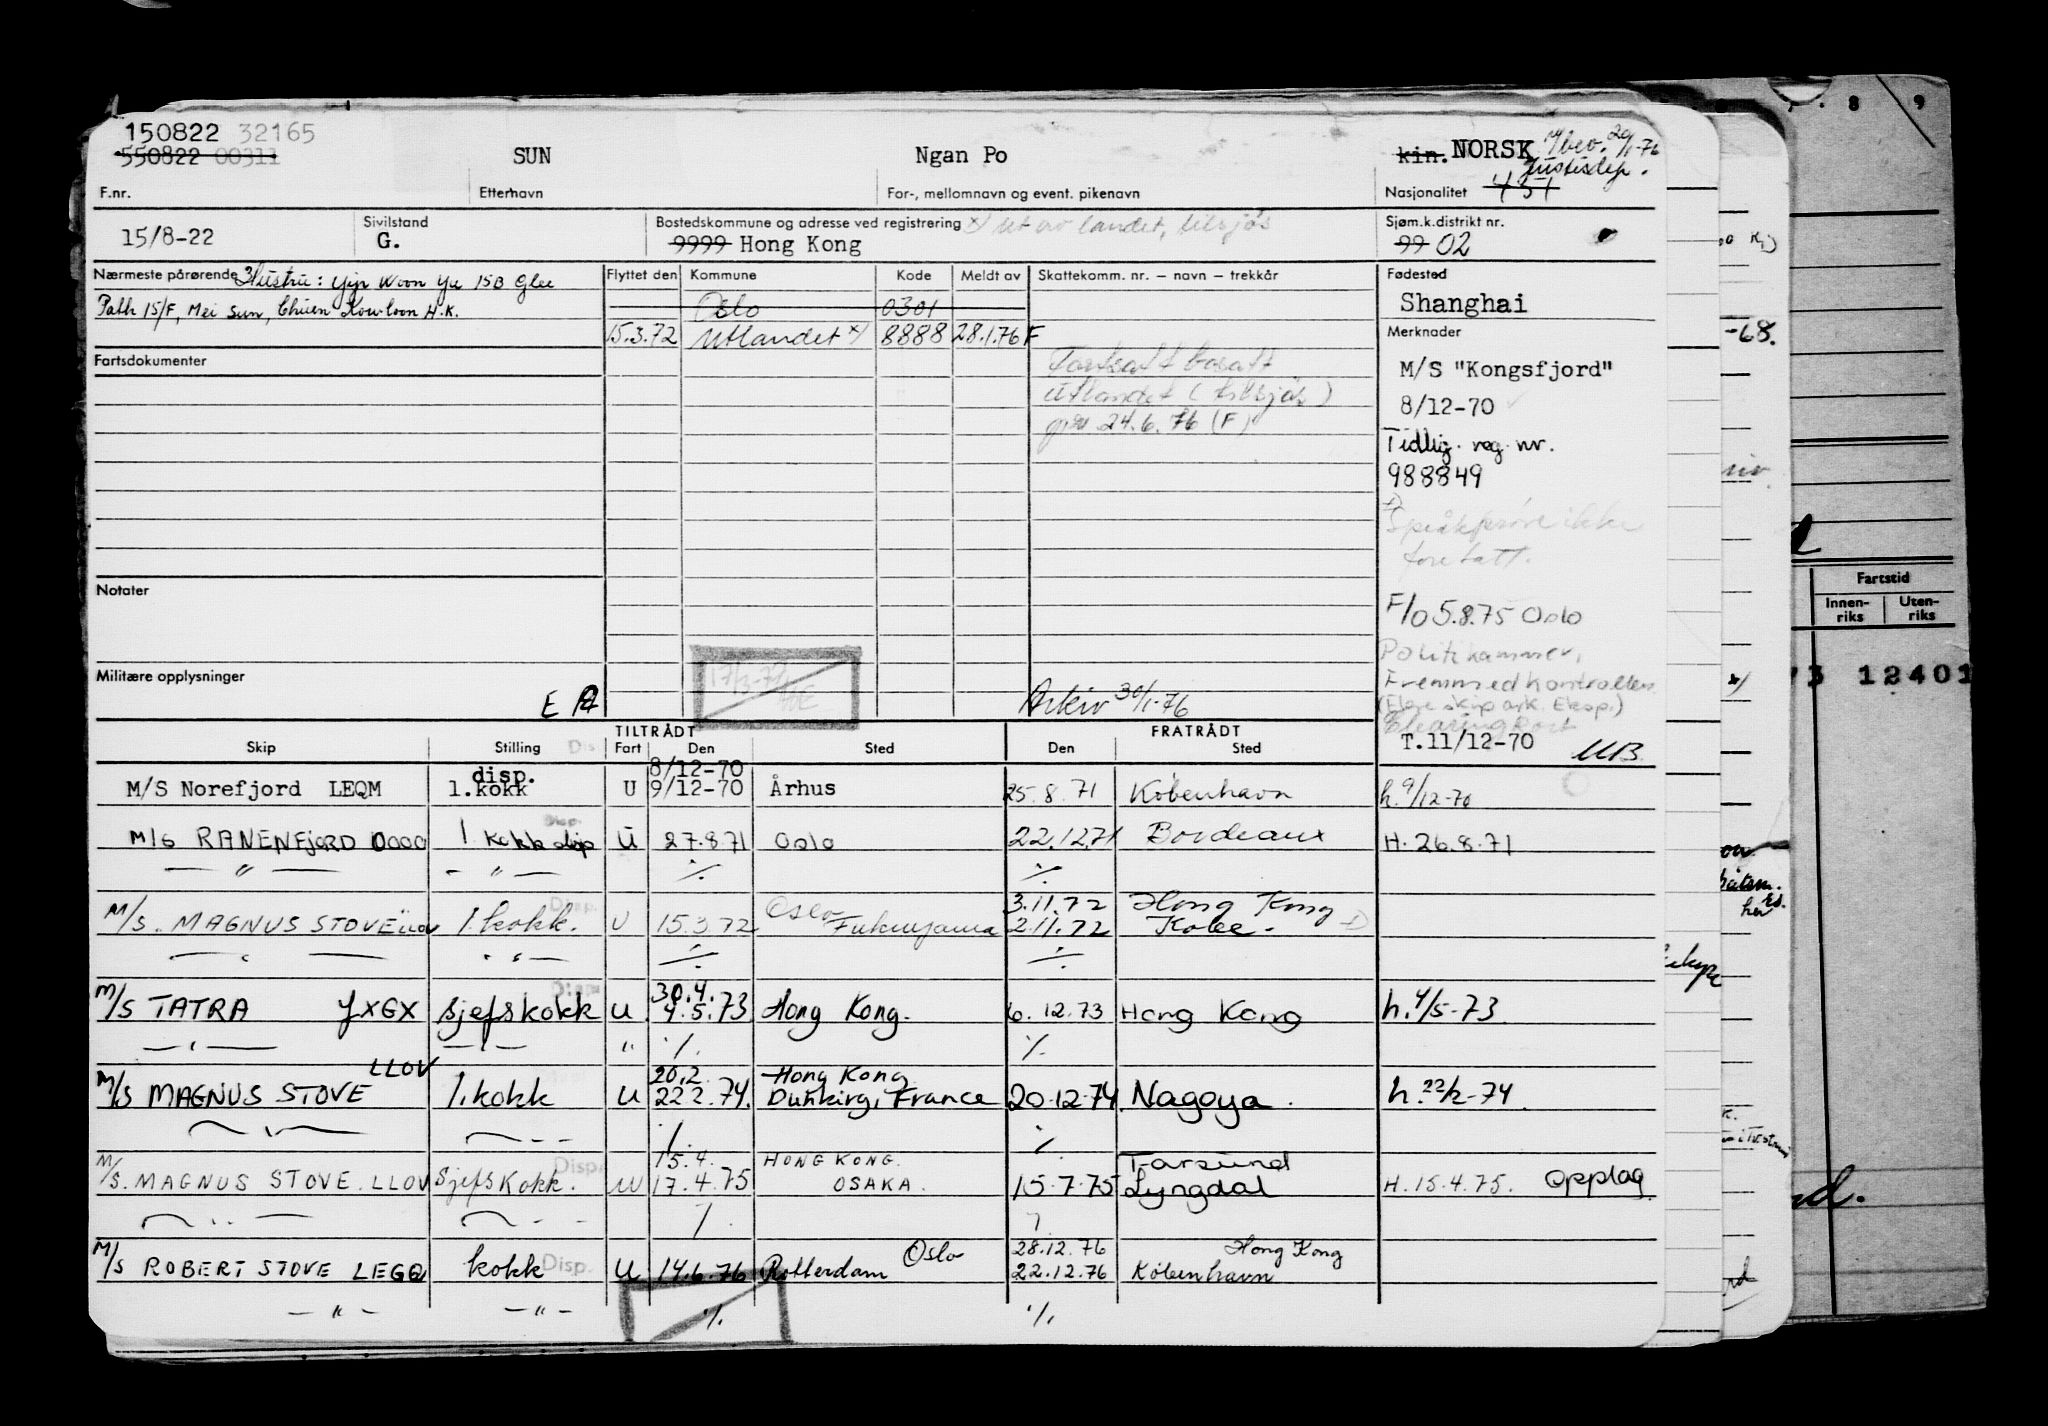 150822 32165
550822 00311
SUN
Ngan Po
kin. NORSK
bev. 20/1-76
Justisdep.
F.nr.
Etternavn
For-, mellomnavn og event. pikenavn
Nasjonalitet 451
15/8-22
Sivilstand
G.
Bostedskommune og adresse ved registrering x) ut av landet, tilsjøs
9999 Hong Kong
Sjøm.k.distrikt nr.
99 02
Nærmeste pårørende Hustru: Yip Woon Yu 15B Glee
Path 15/F, Mei Sun, Chuen Kowloon H.K.
Flyttet den
Kommune
Kode
Meldt av
Skattekomm. nr. – navn – trekkår
Fødested
Shanghai
Oslo 0301
15.3.72 Utlandet x) 8888 28.1.76 F
Merknader
Fartsdokumenter
Fortsatt bosatt
utlandet (tilsjøs)
24.6.76 (F)
M/S "Kongsfjord"
8/12-70
Tidlig. reg. nr.
988849
Språkprøve ikke
foretatt.
F/O 5.8.75 Oslo
Politikammer,
Fremmedkontrollen
Notater
Militære opplysninger
E
17/3-72
Arkiv 30/1-76
T.11/12-70
TILTRÅDT
FRATRÅDT
Skip
Stilling
Fart
Den
Sted
Den
Sted
M/S Norefjord LEQM disp. 1.kokk U 8/12-70 9/12-70 Århus 25.8.71 København h.9/12-70
M/S RANENFJORD 1 kokk disp U 27.8.71 Oslo 22.12.71 Bordeaux H.26.8.71
— " — — " — ./. ./.
M/S. MAGNUS STOVE LLOV 1.kokk. U 15.3.72 Oslo Fukuyama 3.11.72 2.11.72 Hong Kong Kobe.
— " — — " — ./. ./.
M/S TATRA JXGX Sjefskokk U 30.4. 4.5.73 Hong Kong. 6.12.73 Hong Kong h.4/5-73
— " — — " — " ./. ./.
M/S MAGNUS STOVE LLOV 1.kokk U 20.2. 22.2.74. Hong Kong Dunkirg, France 20.12.74 Nagoya. h.22/2-74
— " — — " — ./. ./.
M/S. MAGNUS STOVE. LLOV Sjefskokk. Disp. U 15.4. 17.4.75 HONG KONG. OSAKA. 15.7.75 Farsund Lyngdal H.15.4.75. Opplag
— " — — " — ./. ./.
M/S ROBERT STOVE LEGQ kokk Disp. U 14.6.76 Rotterdam Oslo 28.12.76 22.12.76 Hong Kong København
— " — — " — ./. ./.
8 9
-68.
Fartstid
Innen-
riks
Uten-
riks
73 12401